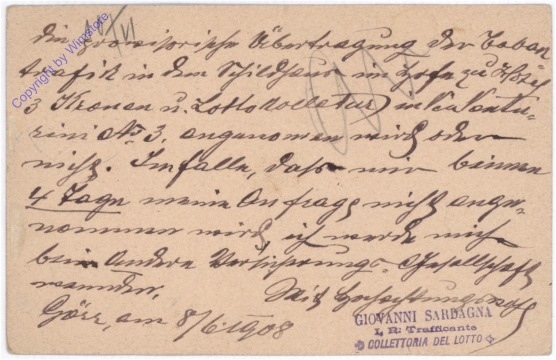 Copyright by Wignstore
VI
die provisorische Übertragung der Taban
trafik in dem Schildhaus im Hofe zu
3 Kronen u. Lotto Kollektur in Via Ventu-
rini No 3, angenomen wird oder
nicht. Im falle, dass mir binnen
4 Tage meine Anfrage nicht ange-
nommen wird, ich werde mich
beim Andere Versicherungs-Gesellschaft
wenden.
Mit Hochachtungsvoll
Görz, am 8/6 1908
GIOVANNI SARDAGNA
I. R. Trafficante
COLLETTORIA DEL LOTTO